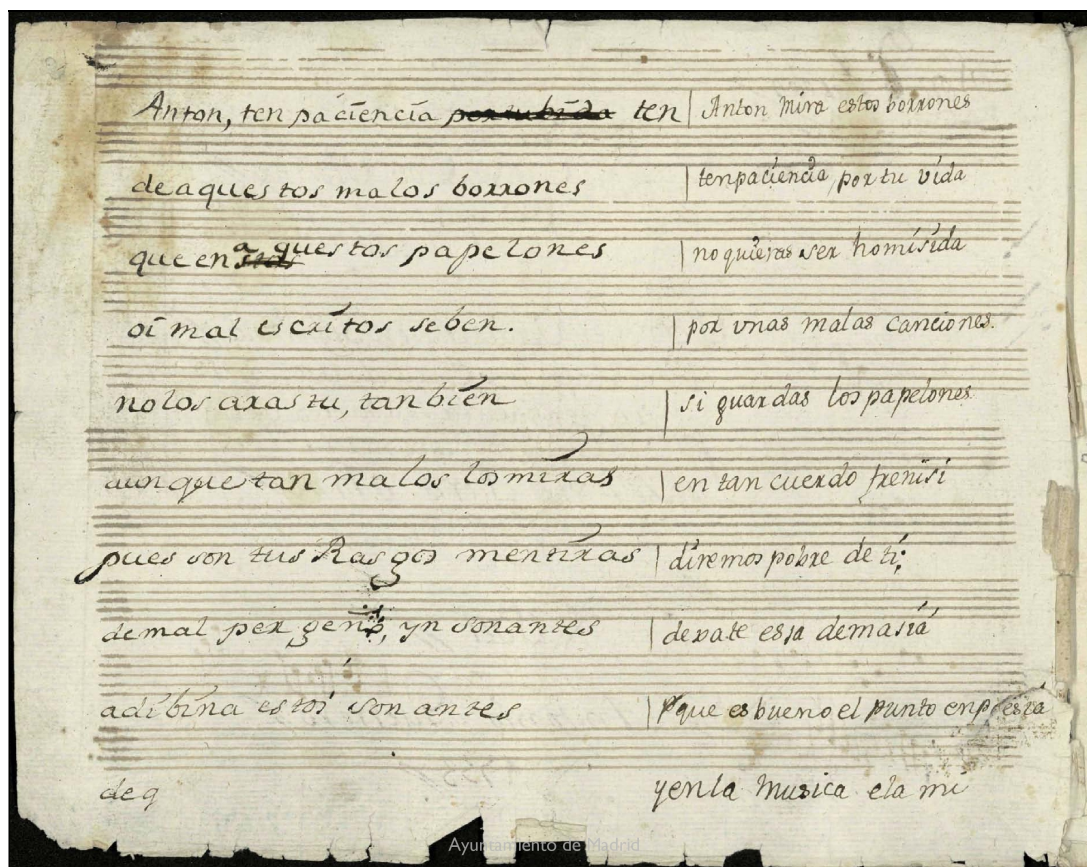 Anton, ten paciencia por tu bida ten
de aquestos malos borrones
que en aquestos papelones
oi mal escritos se ben.
no los aras tu, tan bien
aunque tan malos los miras
pues son tus Rasgos mentiras
de mal pergeño, yn sonantes
adibina estoi sonantes
de q
Anton mira estos borrones
ten paciencia, por tu vida
no quieras ser homisida
por unas malas canciones.
si guardas los papelones
en tan cuerdo frenisi
diremos pobre de ti;
dexate essa demasia
que es bueno el punto en poesia
y en la Musica ela mi
Ayuntamiento de Madrid